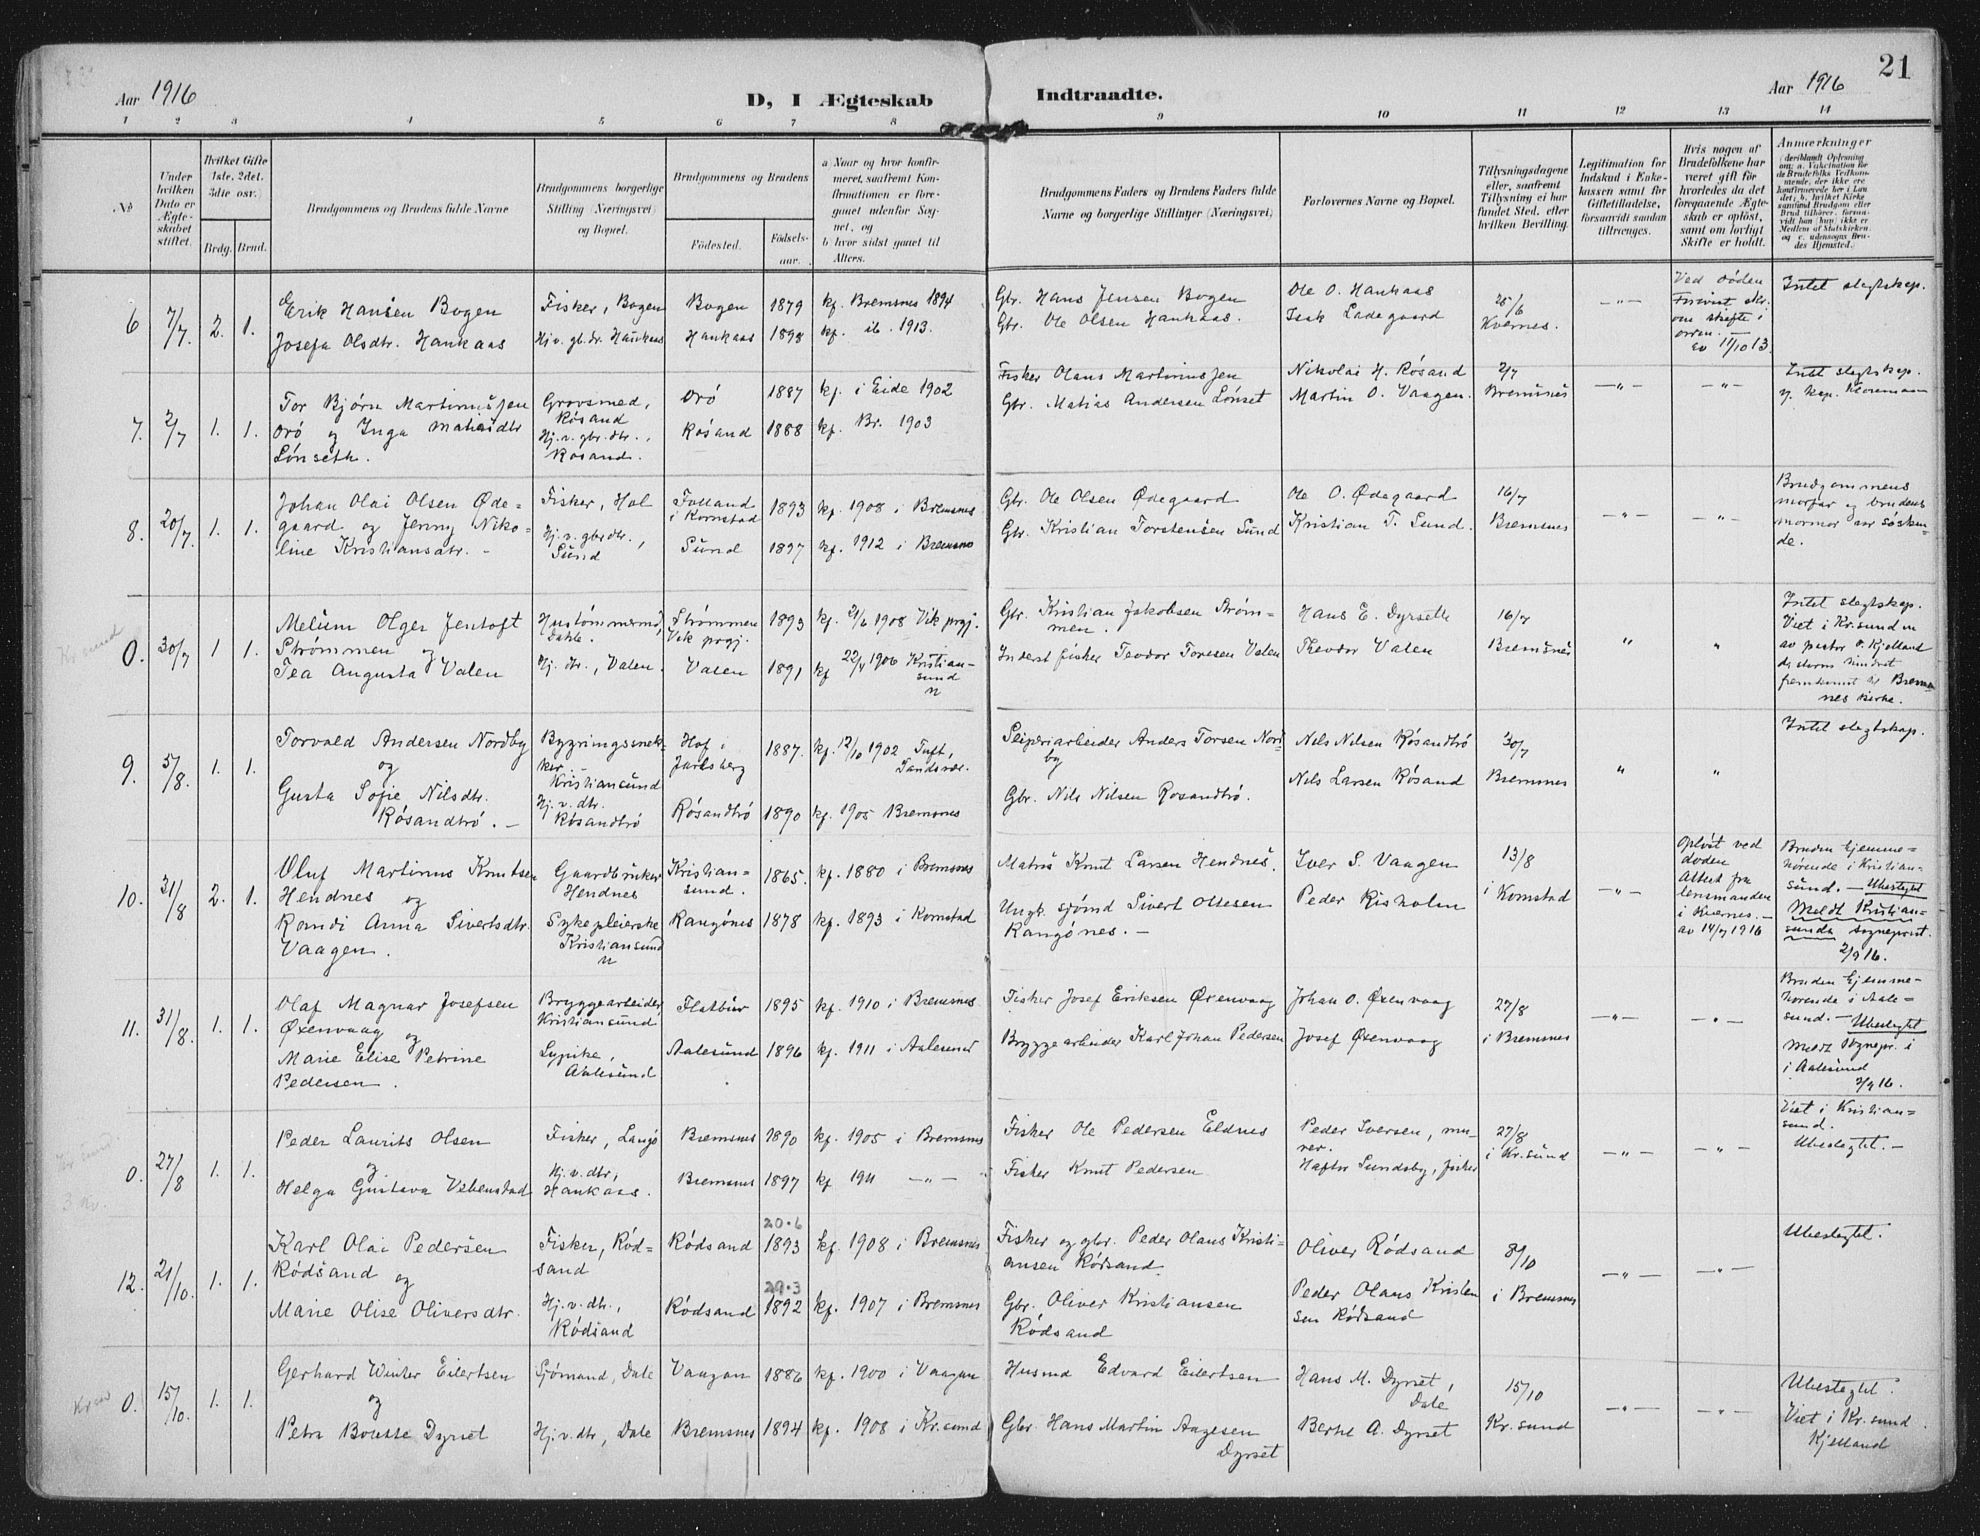 21
Aar 1916
D, I Ægteskab
Indtraadte.
Aar 1916
1 2 3 4 5 6 7 8 9 10 11 12 13 14
No
Under hvilken Dato er Ægteskabet stiftet.
Hvilket Gifte 1ste, 2det. 3dte osv.
Brdg. Brud.
Brudgommens og Brudens fulde Navne
Brudgommens borgerlige Stilling (Næringsvei) og Bopæl.
Brudgommens og Brudens
Fødested.
Fødselsaar.
a Naar og hvor konfirmeret, saafremt Konfirmationen er foregaaet udenfor Sognet, og
b hvor sidst gaaet til Alters.
Brudgommens Faders og Brudens Faders fulde Navne og borgerlige Stillinger (Næringsvei)
Forlovernes Navne og Bopæl.
Tillysningsdagene eller, saafremt Tillysning ei har fundet Sted, efter hvilken Bevilling.
Legitimation for Indskud i Enkekassen samt for Giftetilladelse, forsaavidt saadan tiltrænges.
Hvis nogen af Brudefolkene har været gift før hvorledes da det foregaaende Ægteskab er opløst, samt om lovligt Skifte er holdt.
Anmærkninger
6 7/7. 2. 1.
Erik Hansen Bogen
Josefa Olsdtr. Hankaas
Fisker, Bogen
Hj. v. gb. dr. Hankaas
Bogen 1879 kf. Bremsnes 1894
Hankaas 1898 kf. ib. 1913.
Gbr. Hans Jensen Bogen
Gbr. Ole Olsen Hankaas.
Ole O. Hankaas
Isak Ladegaard
25/6
Kvernes.
Ved døden
11/10 13.
Intet slegtskap.
7. 2/7 1. 1.
Tor Bjørn Martinussen
Orø og Inga Matiasdtr
Lønseth.
Grovsmed,
Røsand
Hj. v. gbr. dtr.,
Røsand.
Orø 1887 kf. i Eide 1902
Røsand 1888 kf. Br. 1903
Fisker Olaus Martinussen
Gbr. Matias Andersen Lønset
Nikolai H. Røsand
Martin O. Vaagen.
2/7
Bremsnes
Intet slegtskap.
8. 20/7. 1. 1.
Johan Olai Olsen Øde-
gaard og Jenny Niko-
line Kristiansdtr. -
Fisker, Hol
Hj. v. gbr dtr.,
Sund
Folland
i Kornstad
1893 kf. 1908 i Bremsnes
Sund 1897 kf. 1912 i Bremsnes
Gbr. Ole Olsen Ødegaard
Gbr. Kristian Torstensen Sund
Ole O. Ødegaard
Kristian T. Sund.
16/7
Bremsnes
Brudgommens
morfar og brudens
mormor var søsken-
de.
Kr.sund
0. 30/7 1 1.
Melium Olger Jentoft
Strømmen og
Tea Augusta Valen
Hustømmermd,
Dahle.
Hj. dtr., Valen.
Strømmen
Vik prgj.
1893 kf. 21/6 1908 Vik prgj.
Valen 1891 kf 22/4 1906 Kristian-
sund
N
Gbr. Kristian Jakobsen Strøm-
men.
Inderst fisker Teodor Toresen Valen
Hans E. Dyrseth
Theodor Valen
16/7
Bremsnes
Intet slegtskap.
Viet i Kr.sund N
av pastor O. Kjelland
da storm hindret
fremkomst til Brems-
nes kirke.
9. 5/8. 1. 1.
Torvald Andersen Nordby
og
Gusta Sofie Nilsdtr.
Røsandtrø. -
Bygningssnek-
ker.
Kristiansund
Hj. v. dtr.
Røsandtrø
Hof i
Jarlsberg
1887. kf. 12/10 1902 Tuft,
Sandsvær.
Røsandtrø 1890 kf. 1905 Bremsnes
Anders Torsen Nord-
by
Gbr. Nils Nilsen Røsandtrø.
Nils Nilsen Røsandtrø
Nils Larsen Røsand
30/7
Bremsnes
Intet slegtskap.
10. 31/8 2. 1.
Oluf Martinus Knutsen
Hendnes og
Randi Anna Sivertsdtr.
Vaagen.
Gaardbruker
Hendnes
Sykepleierske
Kristiansund
N
Kristian-
sund.
1865. kf. 1880 i Bremsnes
Rangønes 1878 kf. 1893 i Kornstad
Matros Knut Larsen Hendnes.
Ungk. sjømd Sivert Ottesen
Rangønes. -
Iver S. Vaagen
Peder Risholm
13/8
i Kornstad
Opløst ved
døden
Attest fra
lensmanden
i Kvernes. -
av 14/7 1916
Bruden hjemme-
hørende i Kristian-
sund. - Ubeslegtet
Meldt Kristian-
sunds sogneprest.
2/9 16.
11. 31/8. 1. 1.
Olaf Magnar Josefsen
Øxenvaag og
Marie Elise Petrine
Pedersen.
Bryggearbeider,
Kristiansund
Sypike,
Aalesund
Flatbur 1895 kf. 1910 i Bremsnes
Aalesund 1896 kf. 1911 i Aalesund
Fisker Josef Eriksen Øxenvaag
Bryggearbeider Karl Johan Pedersen
Johan O. Øxenvaag
Josef Øxenvaag
27/8
i Bremsnes
Bruden hjemme-
hørende i Aale-
sund. - Ubeslegtet
Meldt sognepr. i
i Aalesund
2/9 16.
Kr.sund
0. 27/8 1. 1.
Peder Laurits Olsen
og
Helga Gustava Vebenstad
Fisker, Langø
Hj. v. dtr,
Hankaas.
Bremsnes 1890 kf. 1905 i Bremsnes
Bremsnes 1897 kf 1911 - " -
Fisker Ole Pedersen Eldnes
Fisker Knut Pedersen
Peder Iversen, mu-
rer.
Haftor Sundsby, fisker
27/8
i Kr.sund
Viet i Kristian-
sund.
Ubeslegtet. -
12. 21/10. 1. 1.
Karl Olai Pedersen
Rødsand og
Marie Olise Oliversdtr.
Fisker, Rød-
sand
Hj. v. dtr.,
Rødsand
20.6
Rødsand 1893 kf. 1908 i Bremsnes
29.3
Rødsand 1892 kf. 1907 i Bremsnes
Fisker og gbr. Peder Olaus Kristi-
ansen Rødsand.
Gbr. Oliver Kristiansen
Rødsand
Oliver Rødsand
Peder Olaus Kristen
sen Rødsand
8/10
i Bremsnes
Ubeslegtet.
0. 15/10. 1. 1.
Gerhard Winter Eilertsen
og
Petra Dyrset
Sjømand, Dale
Hj. v. dtr, Dale
Vaagan 1886 kf. 1900 i Vaagan
Bremsnes 1894 kf. 1908 i Kr.sund
Husmd Edvard Eilertsen
Gbr. Hans Martin Aagesen
Dyrset
Hans M. Dyrset,
Dale
Bertel A. Dyrset
15/10
Kr.sund
Ubeslegtet.
Viet i Kr.sund
Kjelland